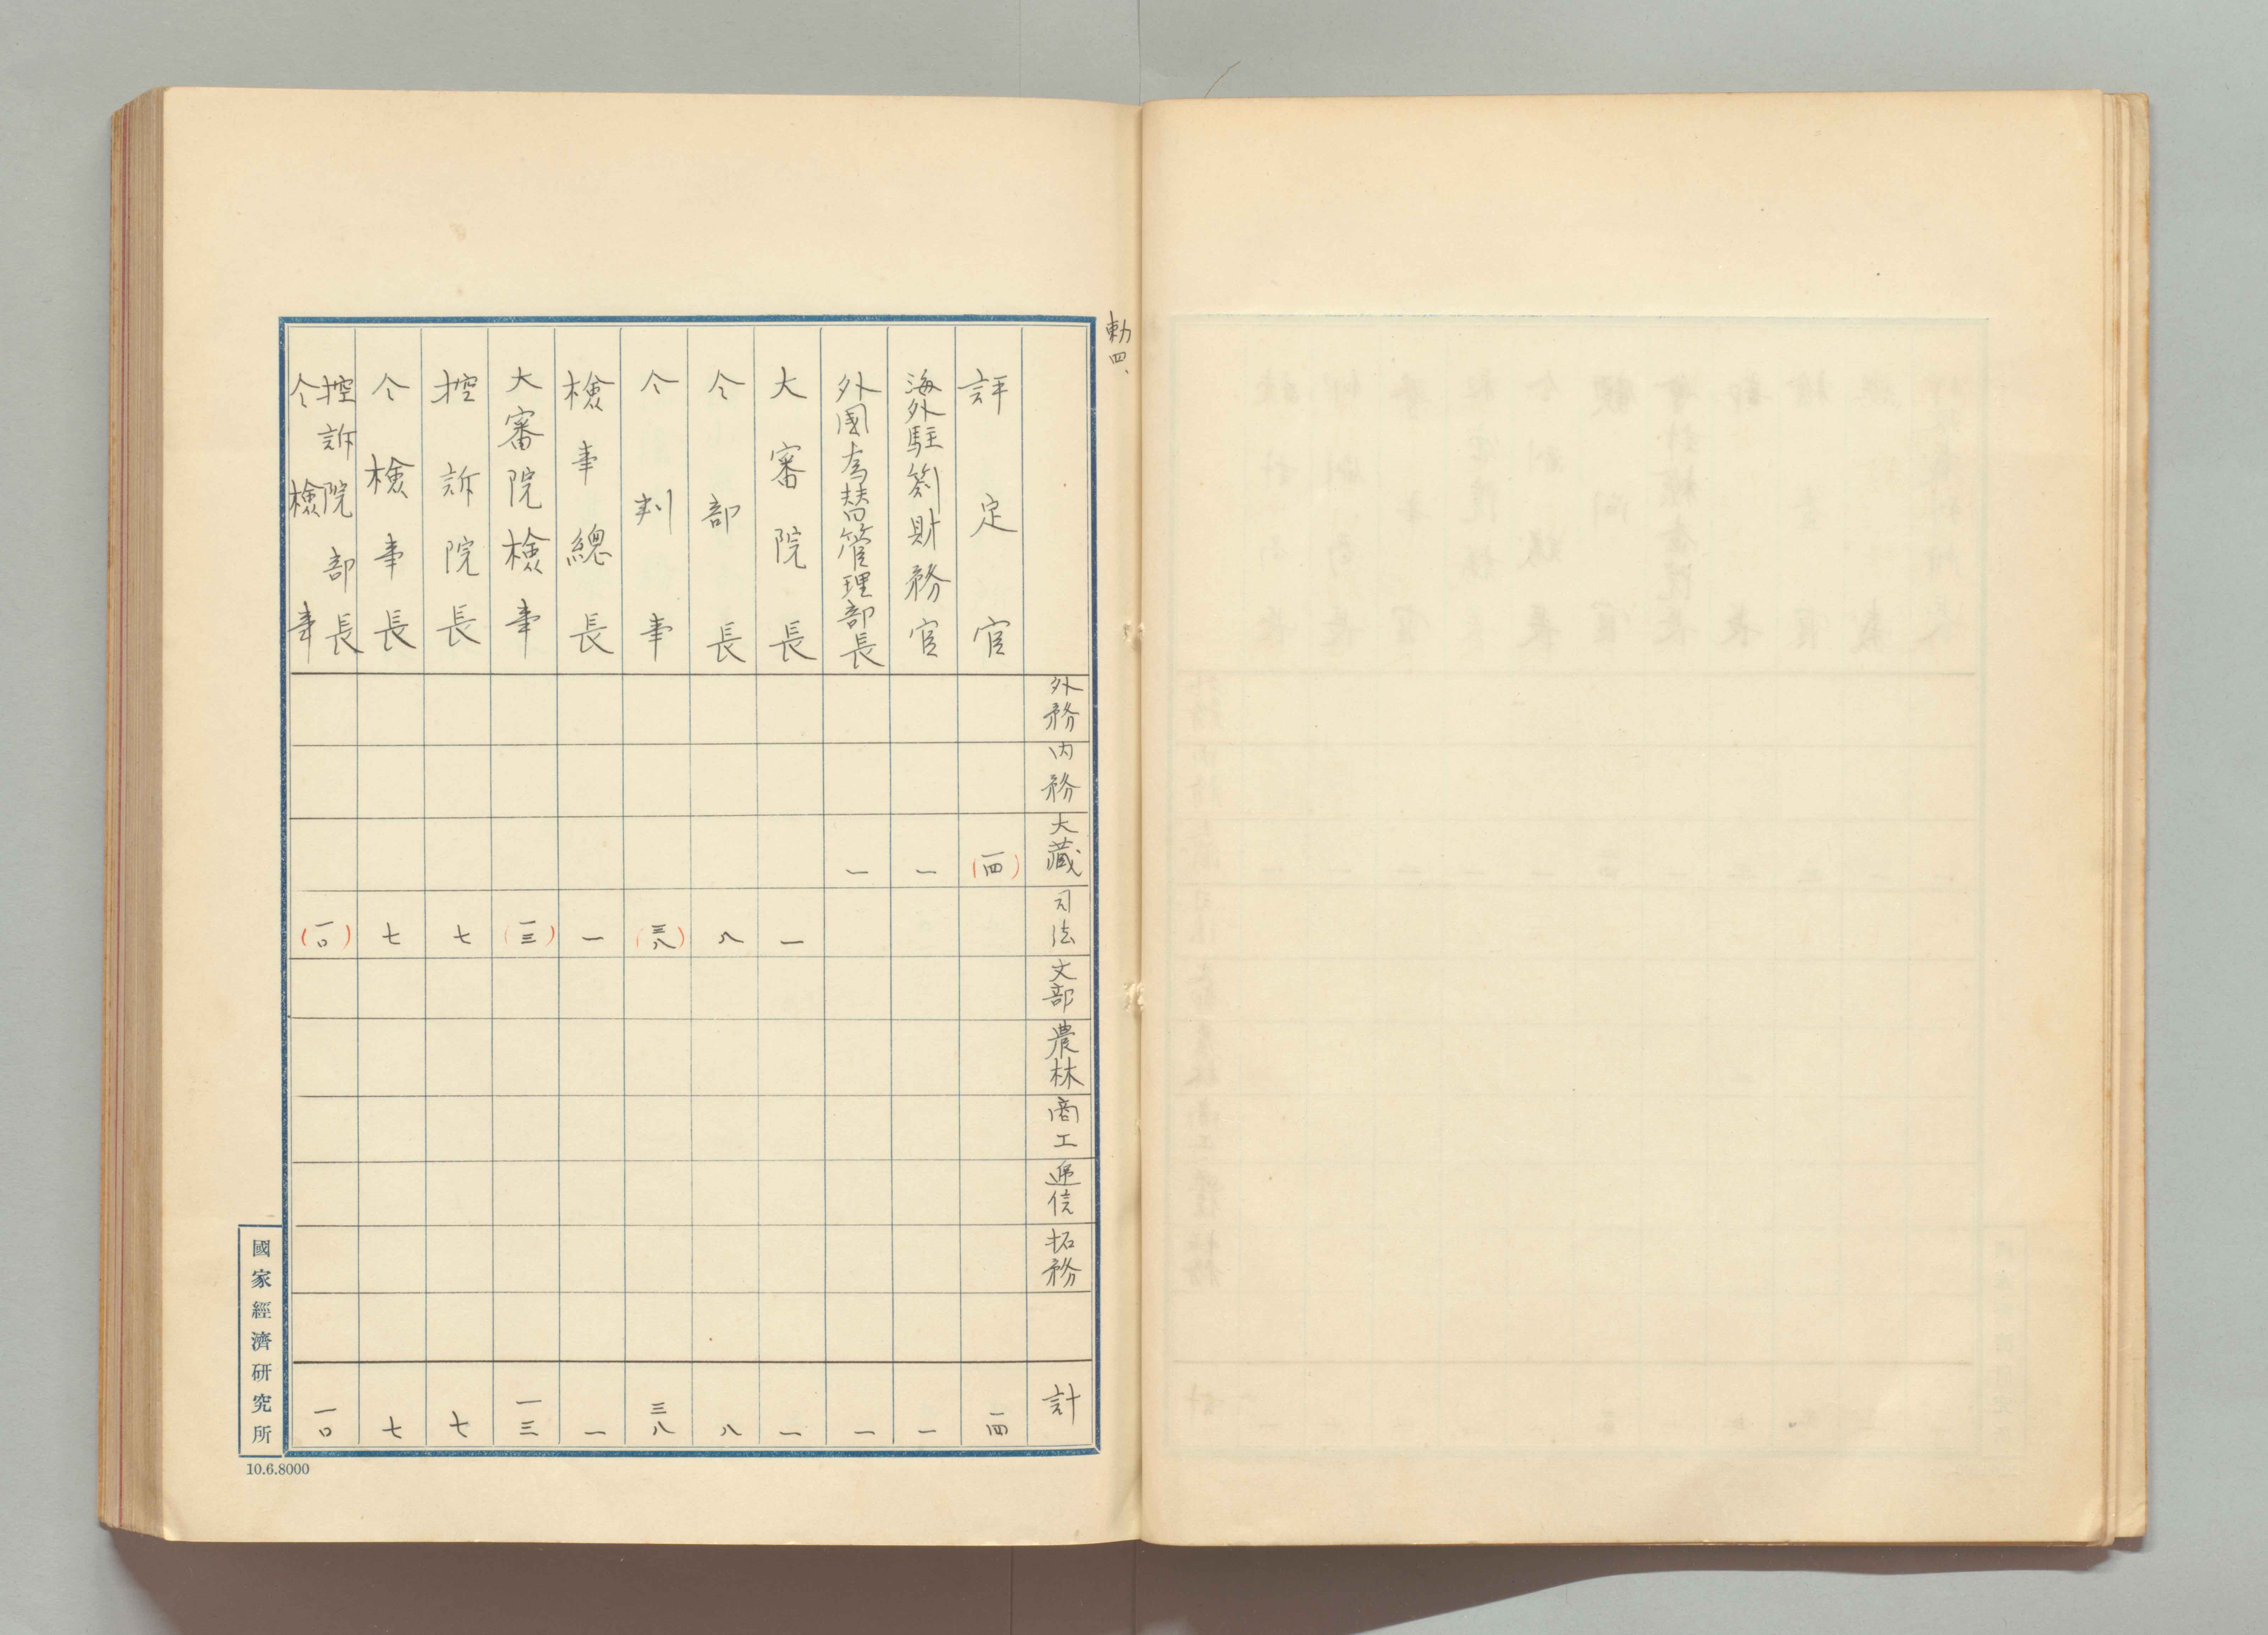 勅四、
外務 内務 大藏 司法 文部 農林 商工 逓信 拓務 計
評定官 (一四) 一四
海外駐箚財務官 一 一
外國為替管理部長 一 一
大審院長 一 一
仝部長 八 八
仝判事 (三八) 三八
檢事總長 一 一
大審院檢事 (一三) 一三
控訴院長 七 七
仝檢事長 七 七
控訴院部長
仝檢事 (一〇) 一〇
國家經濟研究所
10.6.8000